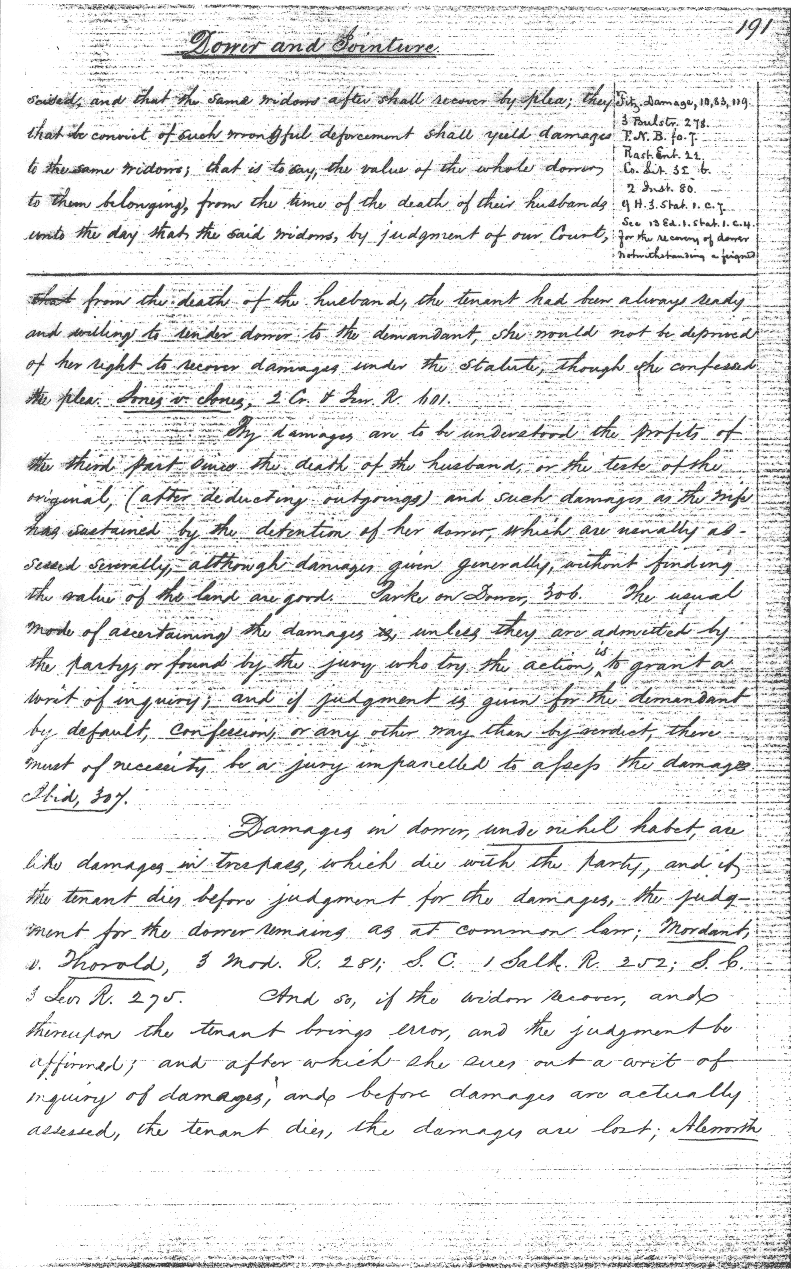 191
Dower and Jointure.
seised, and that the same widows after shall recover by plea; they
that be convict of such wrongful deforcement shall yield damages
to the same widows; that is to say, the value of the whole dower,
to them belonging, from the time of the death of their husbands
unto the day that the said widows, by judgment of our Court,
Fitz. Damage, 10, 83, 119.
3 Bulstr. 278.
F. N. B. fo. 7.
Rast. Ent. 22.
Co. Lit. 32 b.
2 Inst. 80.
9 H. 3. Stat. 1. c. 7.
See 13 Ed. 1. Stat. 1. c. 4.
for the recovery of dower
notwithstanding a feigned
that from the death of the husband, the tenant had been always ready
and willing to render dower to the demandant, she would not be deprived
of her right to recover damages under the statute, though she confessed
the plea. Jones v. Jones, 2 Cr. & Jer. R. 601.
By damages are to be understood the profits of
the third part since the death of the husband, or the teste of the
original, (after deducting outgoings) and such damages as the wife
has sustained by the detention of her dower, which are usually as-
sessed severally, although damages given generally, without finding
the value of the land are good. Parke on Dower, 306. The usual
mode of ascertaining the damages is, unless they are admitted by
the party, or found by the jury who try the action, is to grant a
writ of inquiry; and if judgment is given for the demandant
by default, confession, or any other way than by verdict, there
must of necessity be a jury impanelled to assess the damages.
Ibid, 307.
Damages in dower, unde nihil habet, are
like damages in trespass, which die with the party, and if
the tenant dies before judgment for the damages, the judg-
ment for the dower remains as at common law; Mordant,
v. Thorold, 3 Mod. R. 281; S. C. 1 Salk. R. 252; S. C.
3 Lev. R. 275. And so, if the widow recover, and
thereupon the tenant brings error, and the judgment be
affirmed; and after which she sues out a writ of
inquiry of damages, and before damages are actually
assessed, the tenant dies, the damages are lost; Aleworth